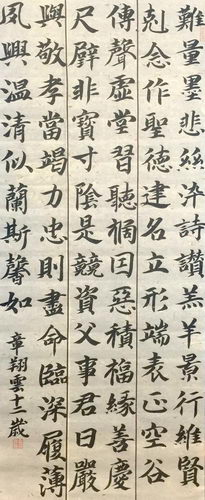 難量墨悲絲染詩讚羔羊景行維賢
剋念作聖德建名立形端表正空谷
傳聲虛堂習聽禍囙惡積福緣善慶
尺璧非寶寸陰是競資父事君曰嚴
與敬孝當竭力忠則盡命臨深履薄
夙興温清似蘭斯馨如
章翔雲十二歲